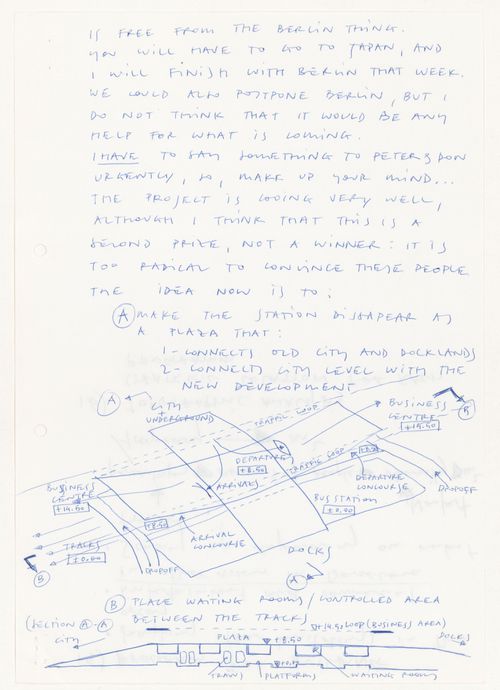 IS FREE FROM THE BERLIN THING.
YOU WILL HAVE TO GO TO JAPAN, AND
I WILL FINISH WITH BERLIN THAT WEEK.
WE COULD ALSO POSTPONE BERLIN, BUT I
DO NOT THINK THAT IT WOULD BE ANY
HELP FOR WHAT IS COMING.
I HAVE TO SAY SOMETHING TO PETER & DON
URGENTLY, SO, MAKE UP YOUR MIND...
THE PROJECT IS GOING VERY WELL,
ALTHOUGH I THINK THAT THIS IS A
SECOND PRIZE, NOT A WINNER: IT IS
TOO RADICAL TO CONVINCE THESE PEOPLE
THE IDEA NOW IS TO:
A MAKE THE STATION DISSAPEAR AS
A PLAZA THAT:
1- CONNECTS OLD CITY AND DOCKLANDS
2- CONNECTS CITY LEVEL WITH THE
NEW DEVELOPMENT
A
CITY
UNDERGROUND
TRAFFIC LOOP
BUSINESS
CENTRE
B
DEPARTURE
+8.50
TRAFFIC LOOP
BUSINESS
CENTRE
+14.50
ARRIVALS
DEPARTURE
CONCOURSE
DROPOFF
BUS STATION
TRACKS
ARRIVAL
CONCOURSE
DOCKS
DROPOFF
B
A
B PLACE WAITING ROOMS / CONTROLLED AREA
BETWEEN THE TRACKS
(SECTION A-A)
+14.50 LOOP (BUSINESS AREA)
CITY
PLAZA
+8.50
DOCKS
TRAINS
PLATFORMS
WAITING ROOMS